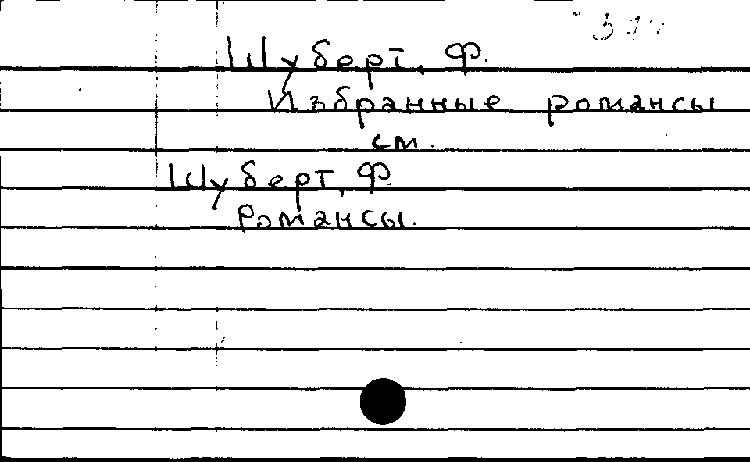 Шуберт, Ф.
Избранные романсы
см.
Шуберт, Ф.
Романсы.